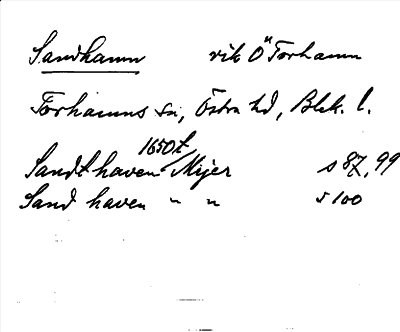 Sandhamn vik Ö Torhamn
Torhamns sn, Östra hd, Blek. l.
Sandt haven 1650t Mejer s 87, 99
Sand haven " " s 100